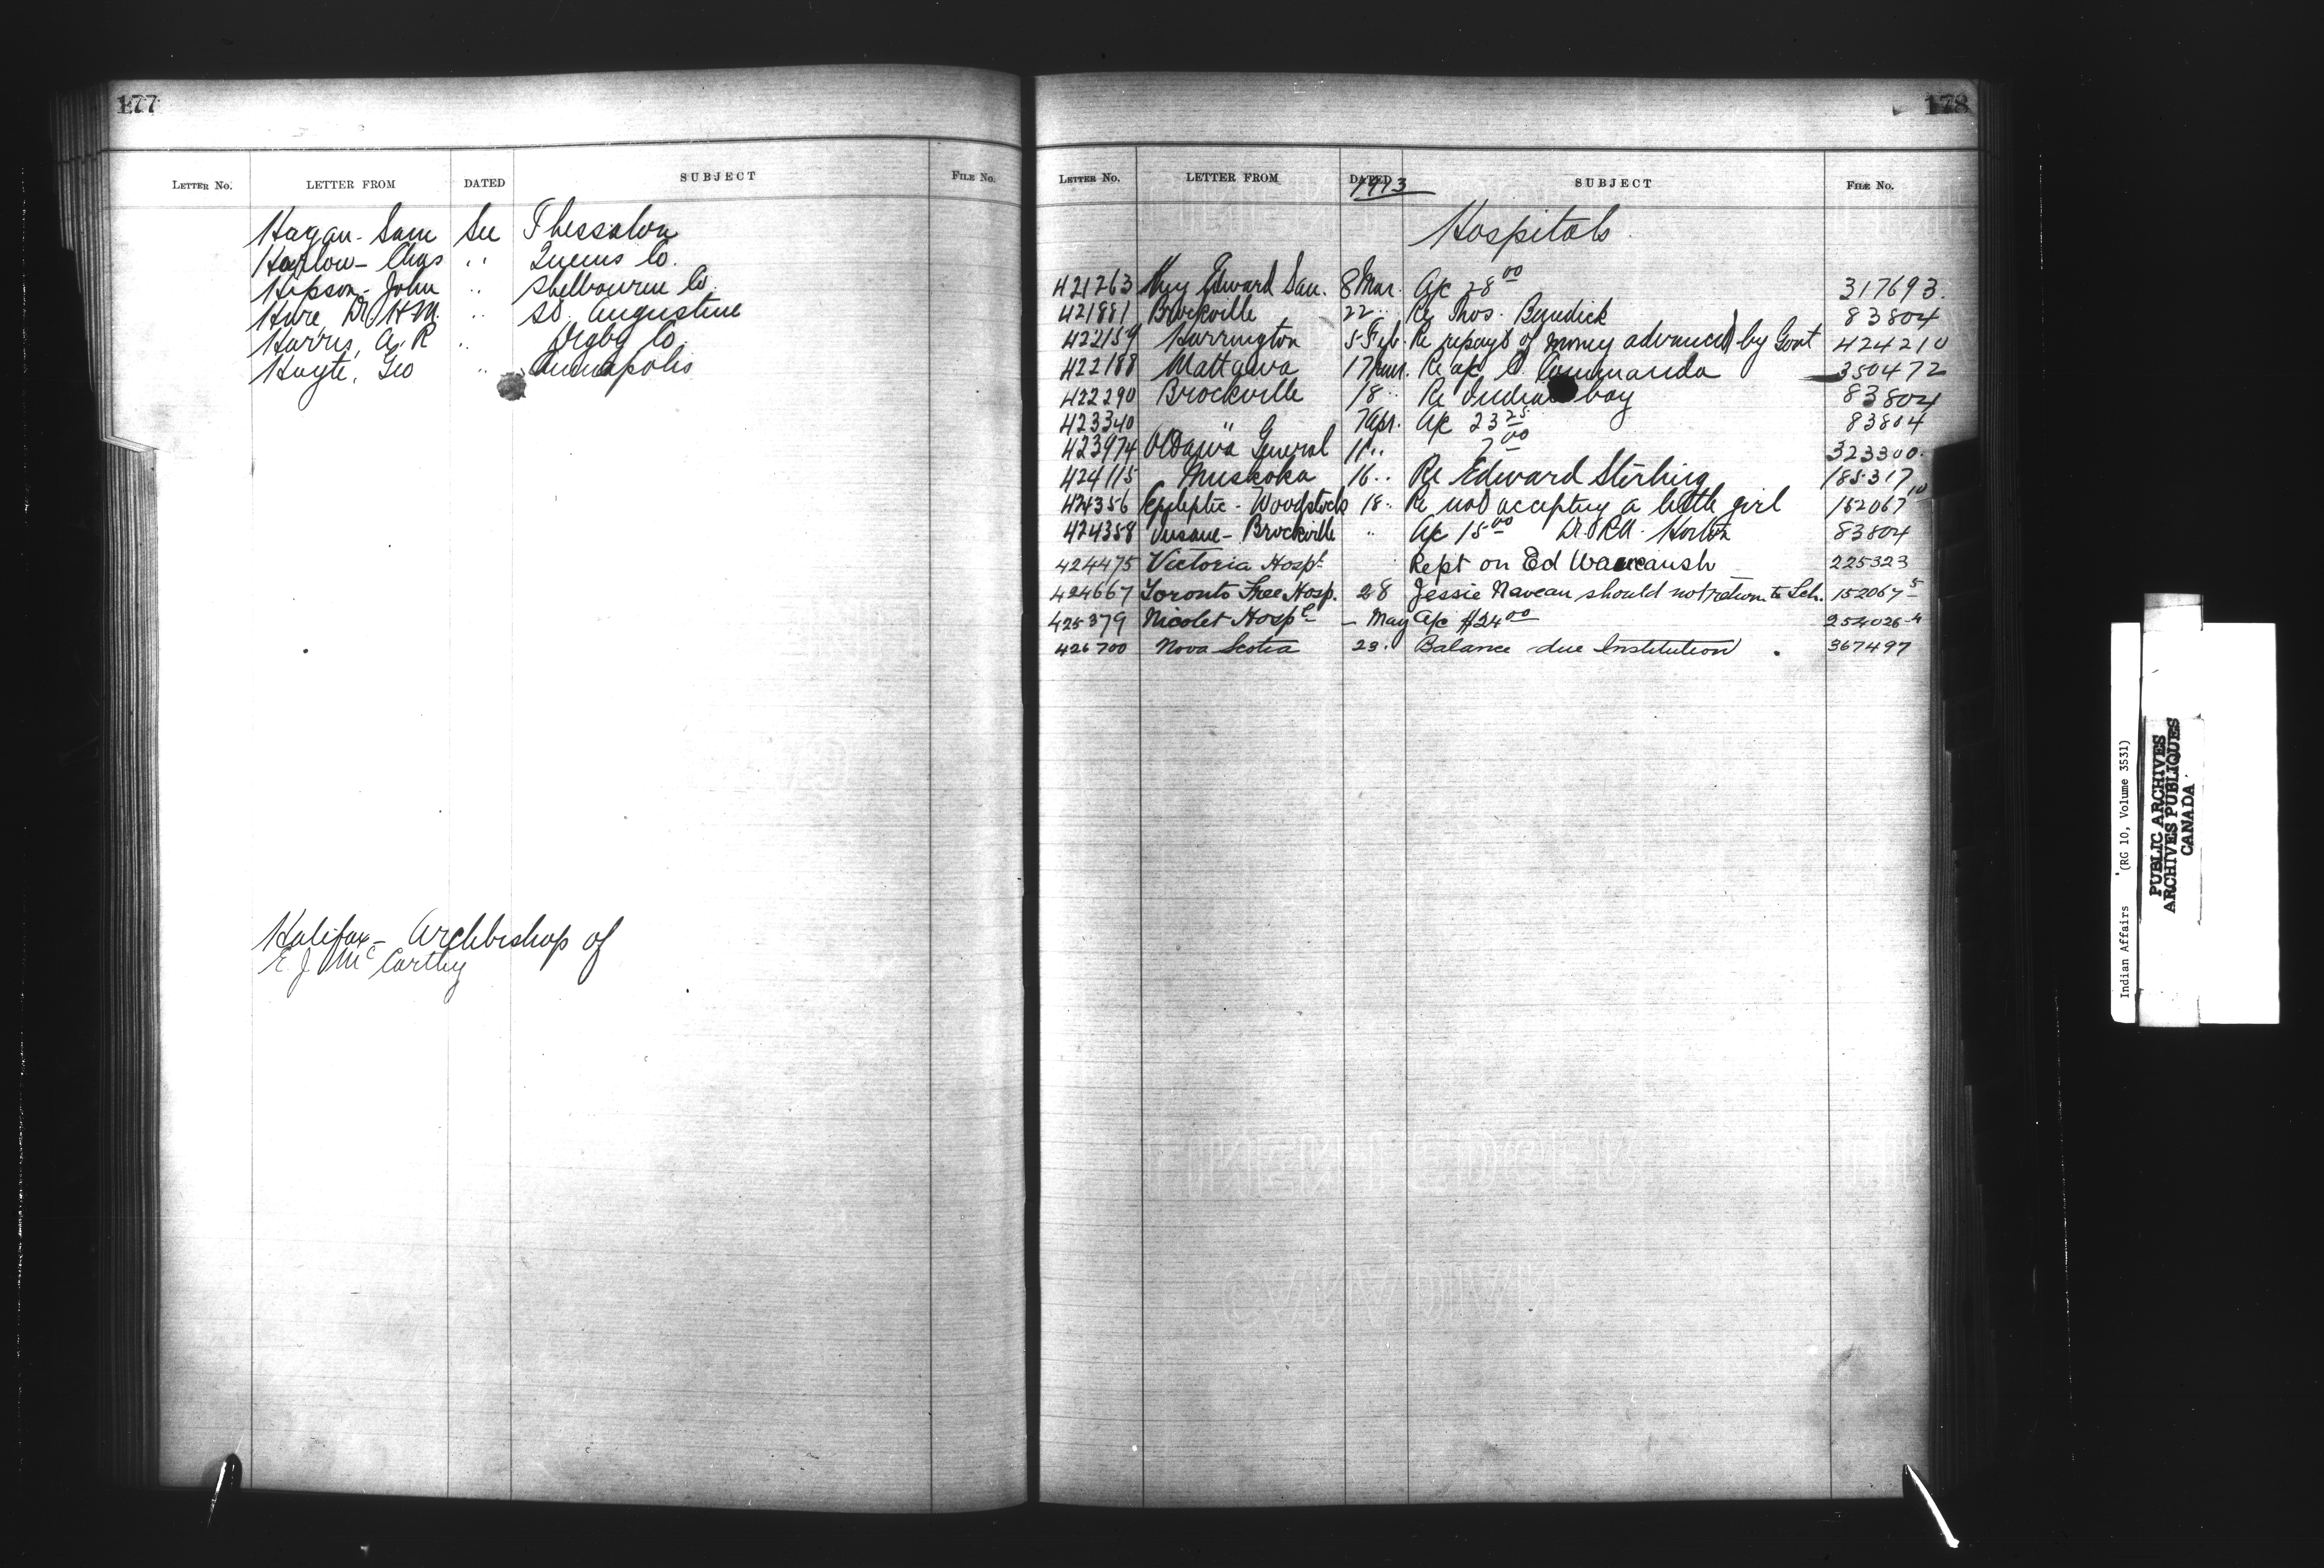 177
LETTER No. LETTER FROM DATED SUBJECT FILE No.
Hagan - Sam See Thessalon
Harlow - Chas " Queens Co.
Hipson - John " Shelbourne Co.
Hare, Dr H M. " St. Augustine
Harris, A. R " Digby Co.
Hoyte, Geo " Annapolis
Halifax - Archbishop of
E. J. McCarthy
178
LETTER No. LETTER FROM DATED SUBJECT FILE No.
1913
Hospitals
421263 King Edward San. 8 Mar. A/c 28 00 317693.
421881 Brockville 22 " Re Thos. Benedick 83804
422159 Harrington 5 Feb. Re repayt of money advanced by Govt 424210
422188 Mattawa 17 Mar. Re a/c Commanda 350472
422290 Brockville 18 " Re Indian boy 83804
423340 " 7 Apr. A/c 23 25 83804
423974 Ottawa General 11 " " 7 00 323300.
424115 Muskoka 16 " Re Edward Stirling 185317
424356 Epileptic - Woodstock 18 " Re not accepting a little girl 152067 10
424358 Insane - Brockville " A/c 15 00 Dr. Horton 83804
424475 Victoria Hospt Rept on Ed Wawanosh 225323
424667 Toronto Free Hosp. 28 Jessie Naveau should not return to Sch. 152067-5
425379 Nicolet Hospl - May A/c $24 00 254026-4
426700 Nova Scotia 23. Balance due Institution 367497
Indian Affairs (RG 10, Volume 3531)
PUBLIC ARCHIVES
ARCHIVES PUBLIQUES
CANADA